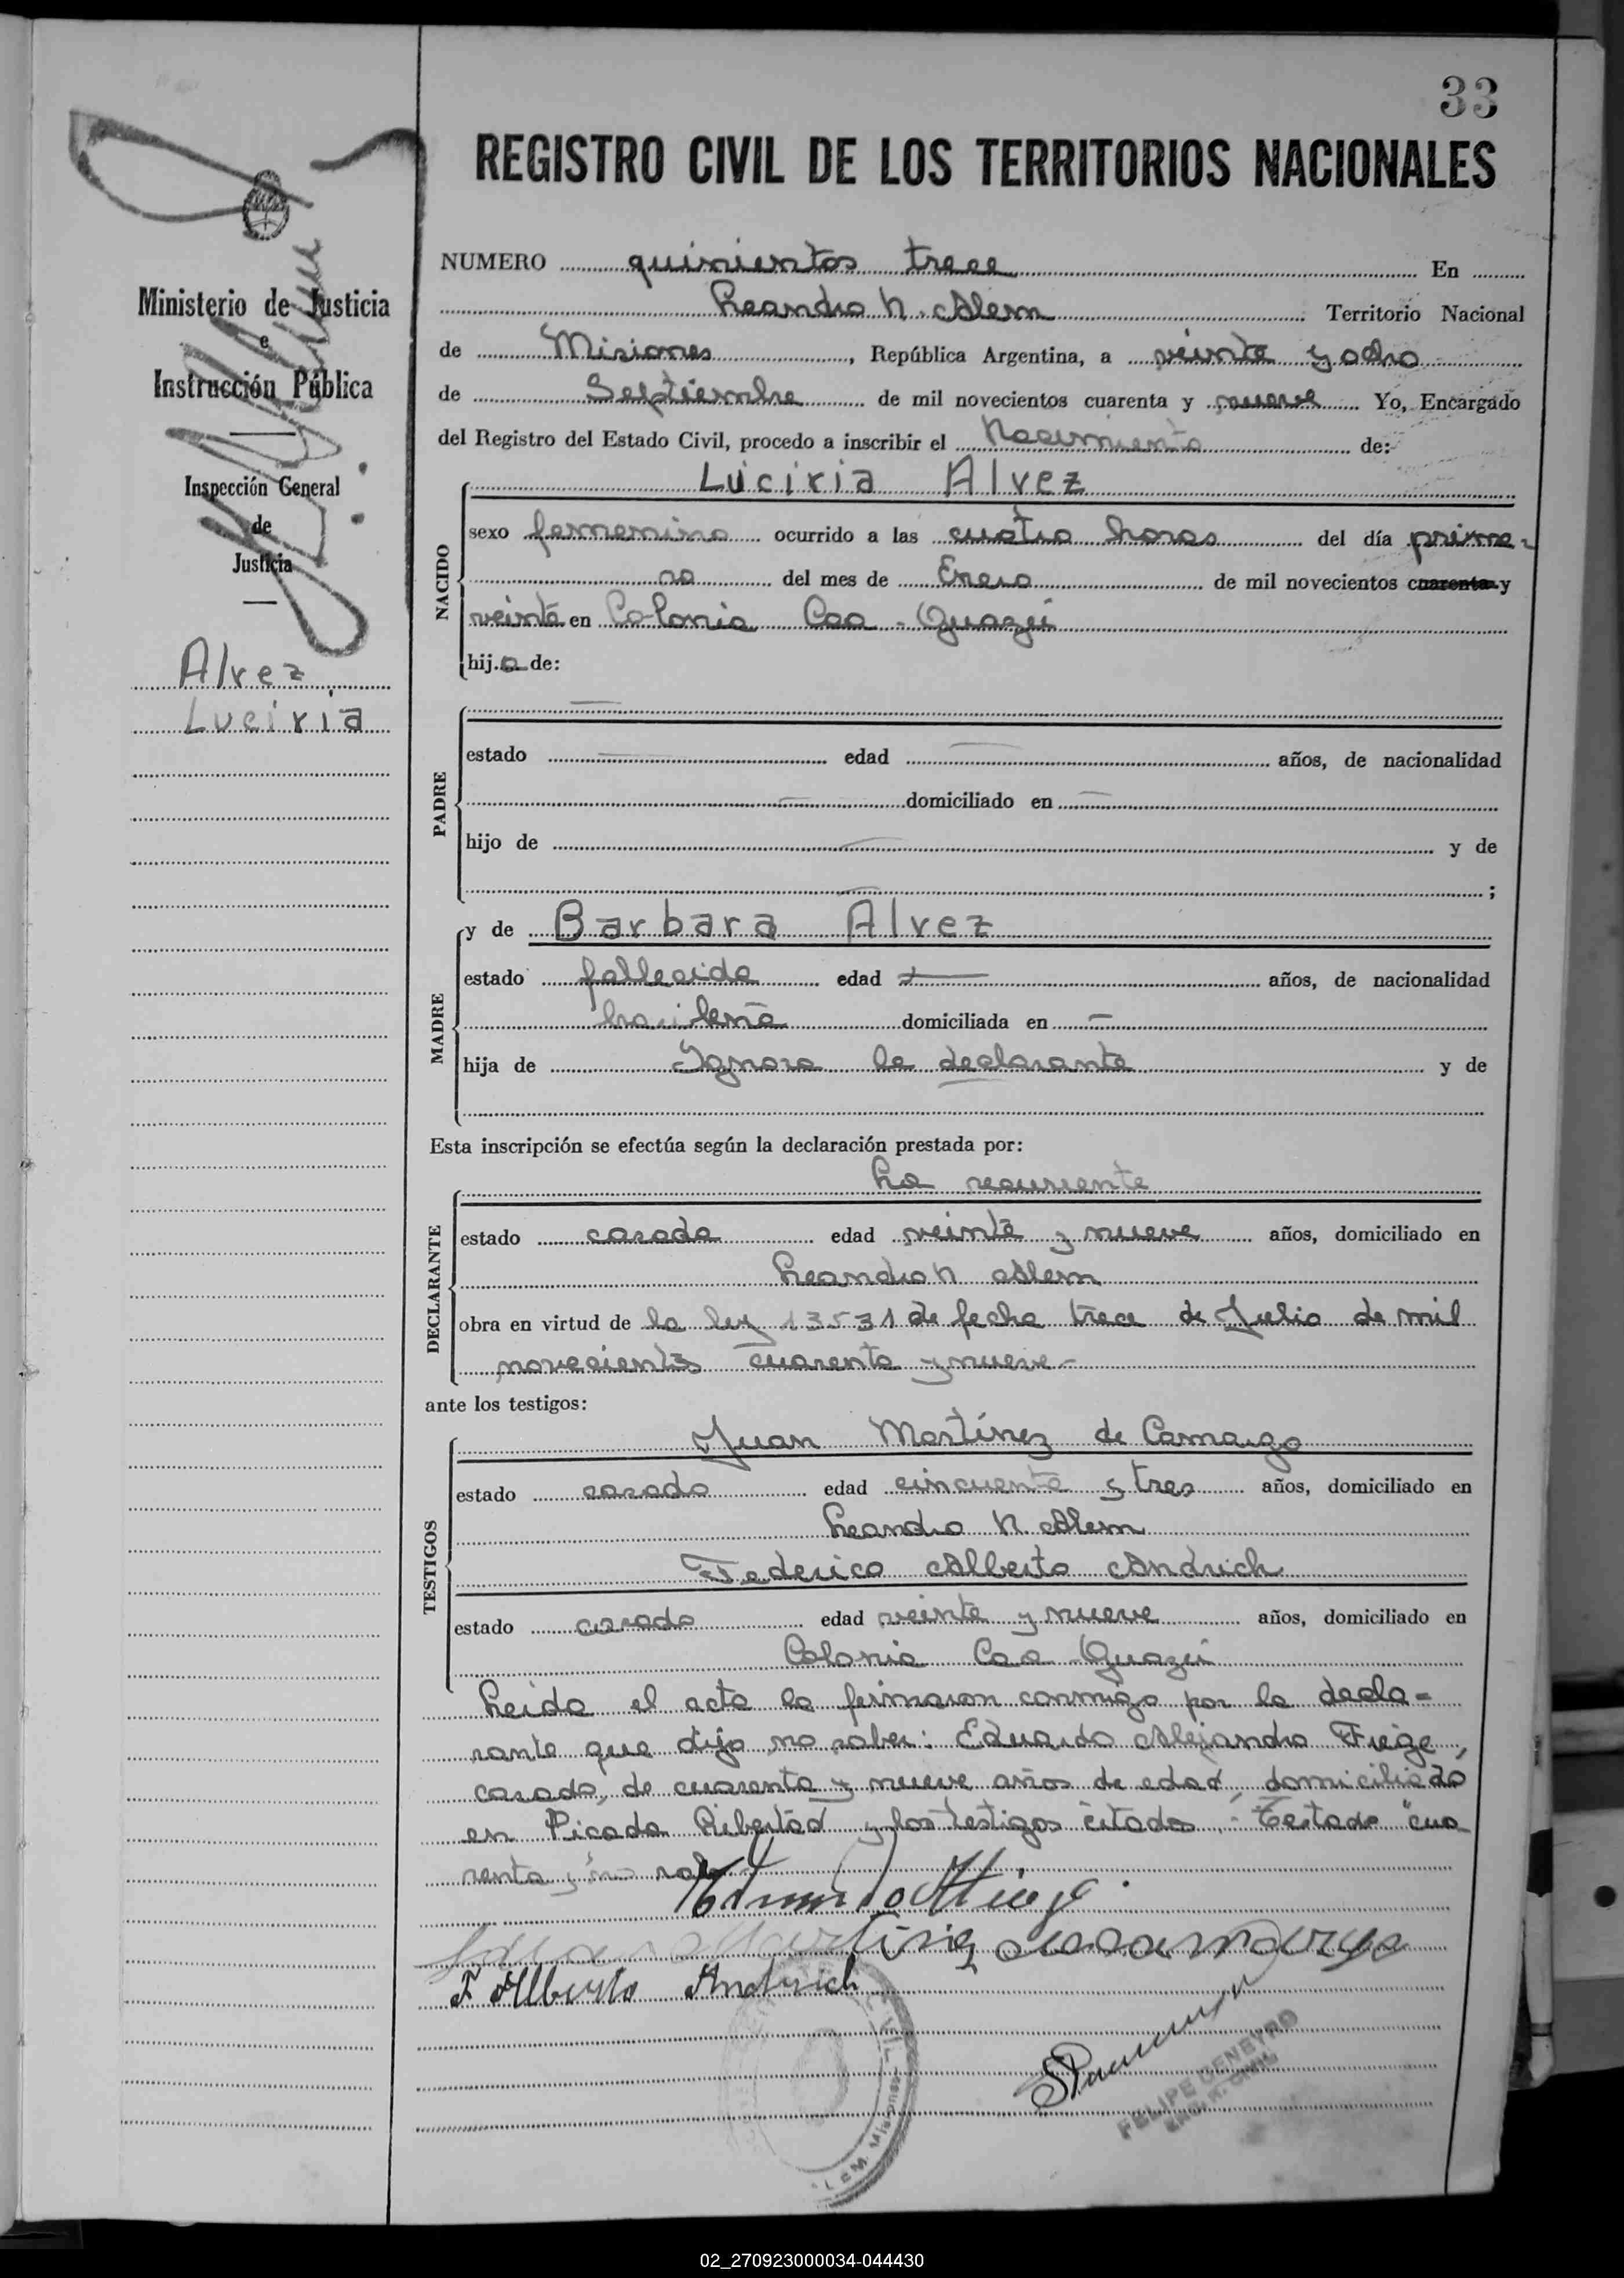 33
REGISTRO CIVIL DE LOS TERRITORIOS NACIONALES
Ministerio de Justicia
e
Instrucción Pública
Inspección General
de
Justicia
Alvez
Luciria
NUMERO quinientos trece En
Leandro N. Alem Territorio Nacional
de Misiones, República Argentina, a veinte y ocho
de Septiembre de mil novecientos cuarenta y nueve Yo, Encargado
del Registro del Estado Civil, procedo a inscribir el Nacimiento de:
Luciria Alvez
NACIDO
sexo femenino ocurrido a las cuatro horas del día prime-
ro del mes de Enero de mil novecientos cuarenta y
veinte en Colonia Caa-Guazú
hija de:
PADRE
estado — edad — años, de nacionalidad
— domiciliado en —
hijo de — y de
— ;
MADRE
y de Barbara Alvez
estado fallecida edad — años, de nacionalidad
brasileña domiciliada en —
hija de Ignora la declarante y de
Esta inscripción se efectúa según la declaración prestada por:
La recurrente
DECLARANTE
estado casada edad veinte y nueve años, domiciliado en
Leandro N Alem
obra en virtud de la ley 13531 de fecha trece de Julio de mil
novecientos cuarenta y nueve-
ante los testigos:
TESTIGOS
Juan Martínez de Camargo
estado casado edad cincuenta y tres años, domiciliado en
Leandro N. Alem
Federico Alberto Andrich
estado casado edad veinte y nueve años, domiciliado en
Colonia Caa-Guazú
Leida el acta la firmaron conmigo por la decla=
rante que dijo no saber: Eduardo Alejandro Fiege,
casado, de cuarenta y nueve años de edad, domiciliado
en Picada Libertad y los testigos citados.- Testado "cua
renta y" no vale
F Alberto Andrich
FELIPE GENEYRO
ENC. R. CIVIL
ALEM. Misiones
02_270923000034-044430